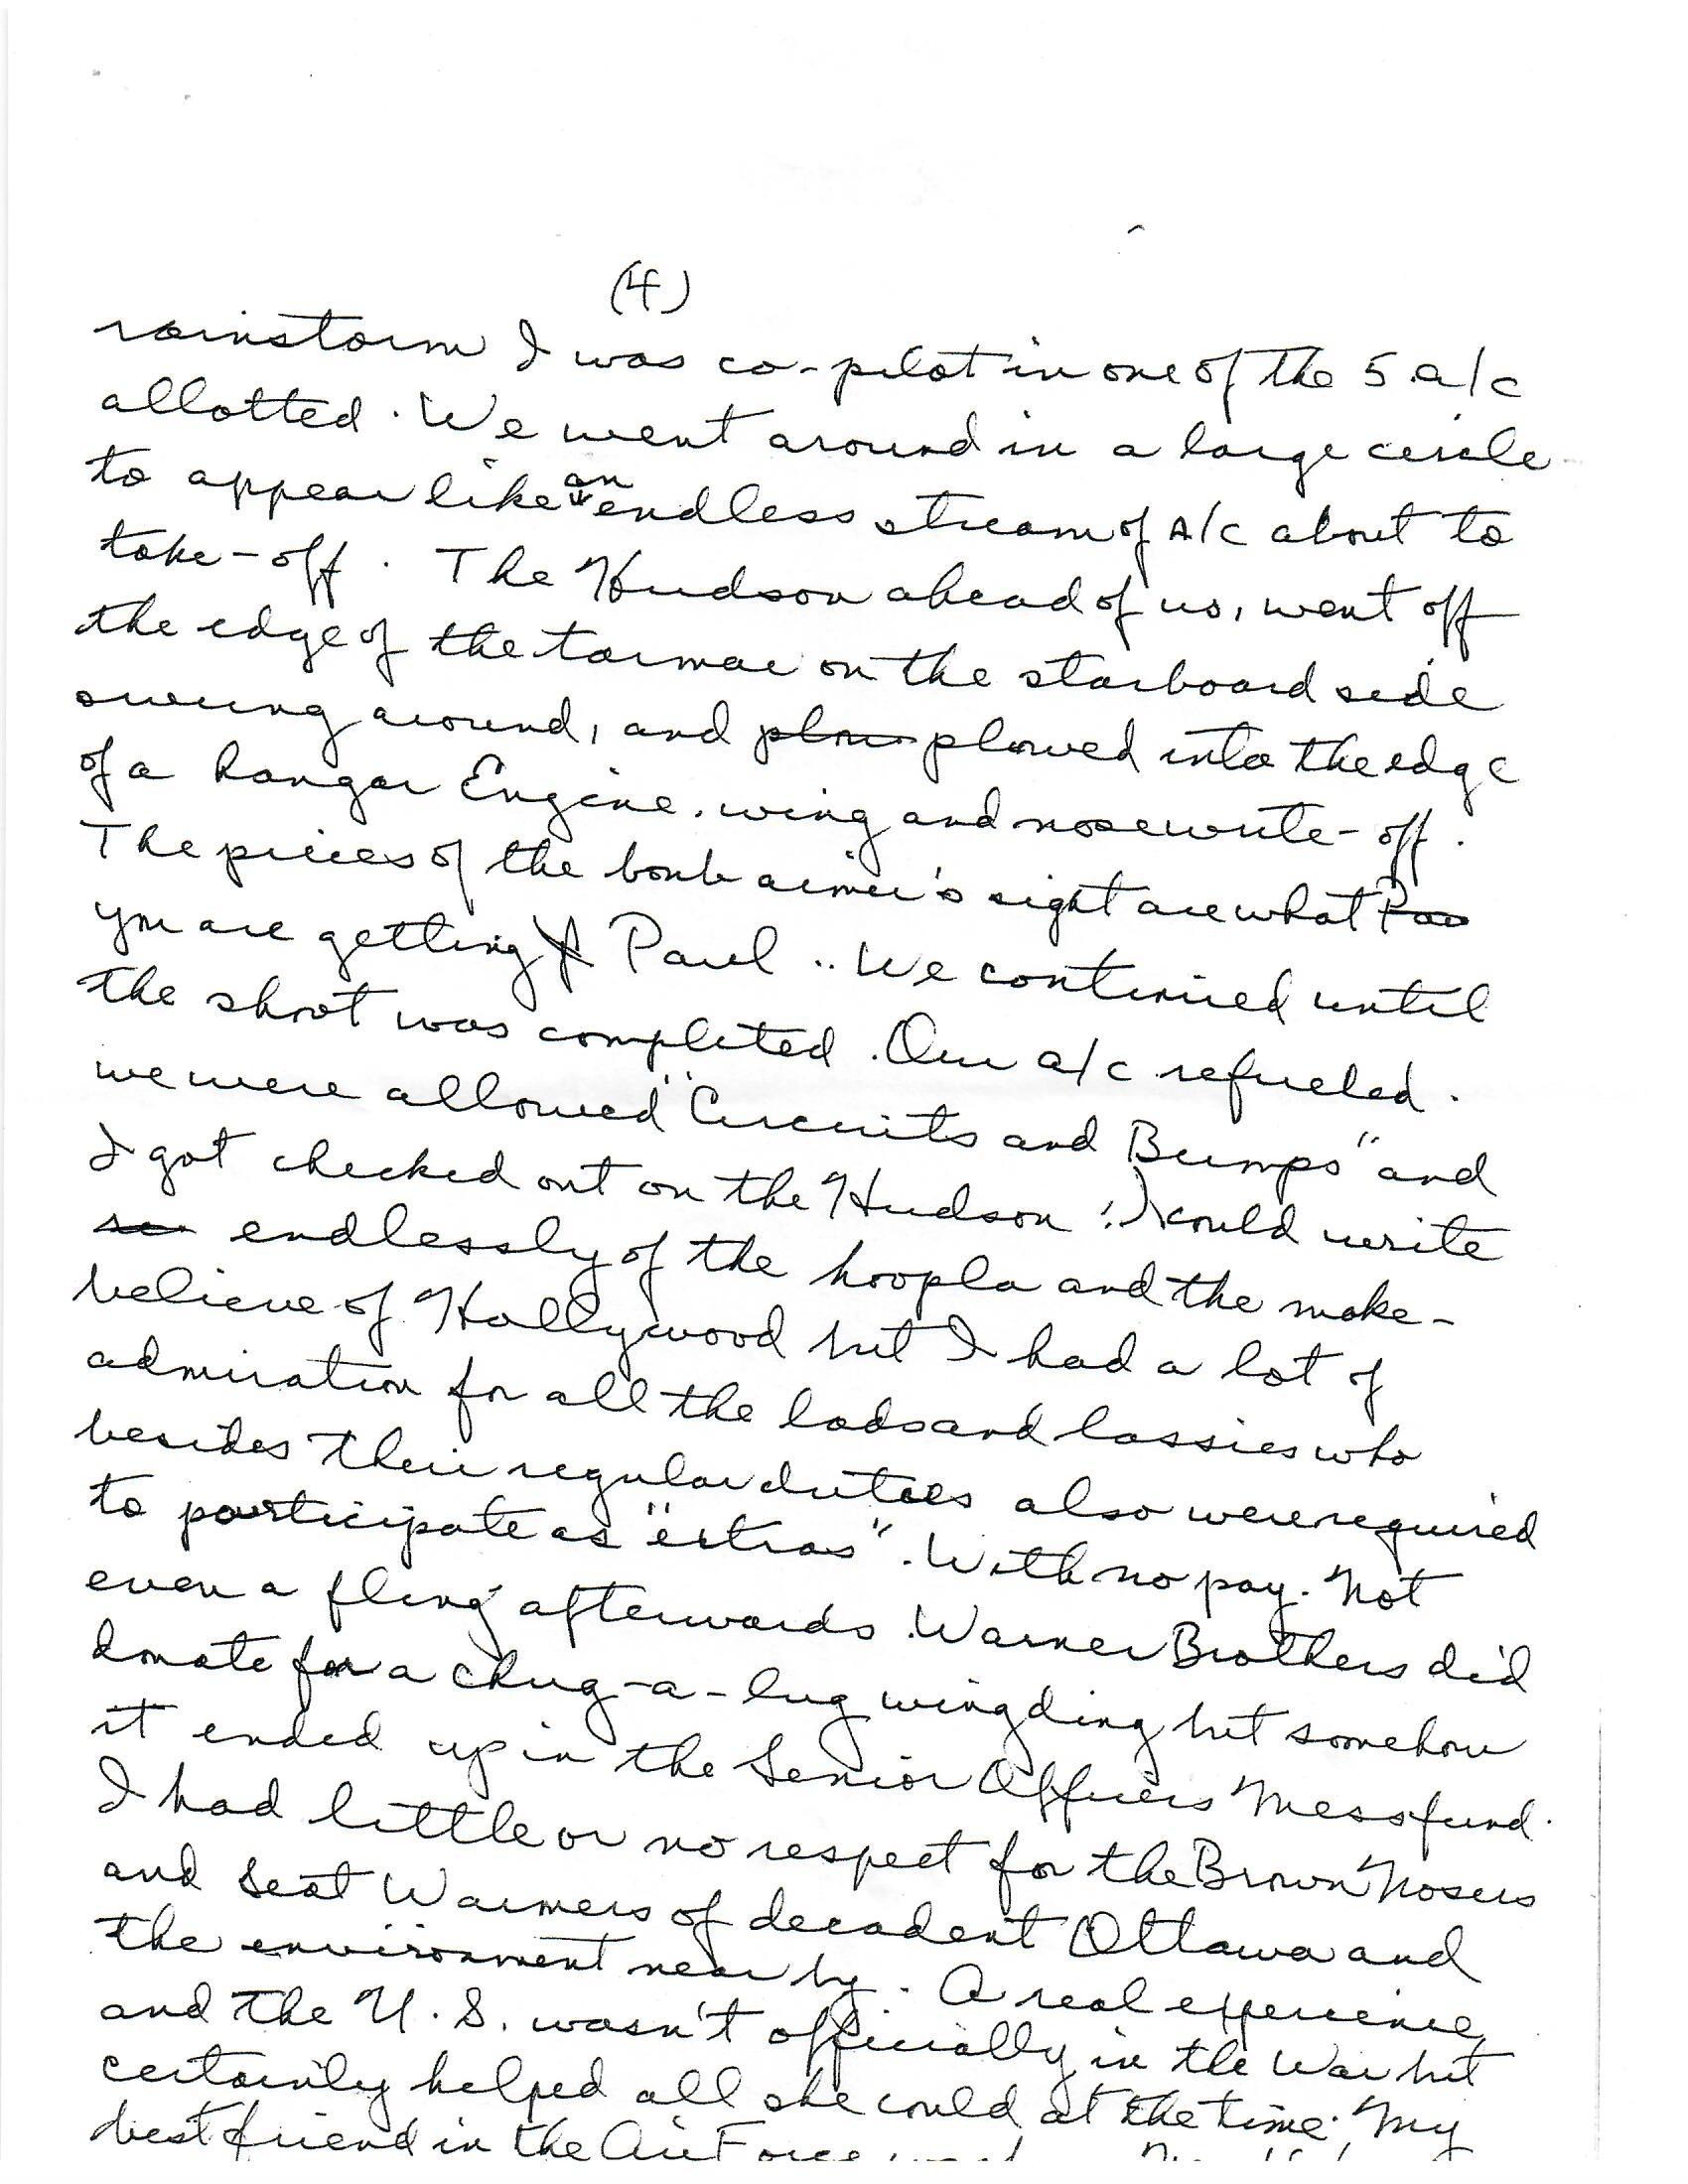 (4)
rainstorm I was co-pilot in one of the 5 a/c
allotted. We went around in a large circle
to appear like an endless stream of A/C about to
take-off. The Hudson ahead of us, went off
the edge of the tarmac on the starboard side
swung around, and plow plowed into the edge
of a hangar Engine, wing and nose write-off.
The pieces of the bomb aimer's sight are what Pau
you are getting Paul .. We continued until
the shoot was completed. Our a/c refueled.
we were allowed "Circuits and Bumps" and
I got checked out on the Hudson! I could write
so endlessly of the hoopla and the make-
believe of Hollywood but I had a lot of
admiration for all the lads and lassies who
besides their regular duties also were required
to participate as "extras". With no pay. Not
even a fling afterwards. Warner Brothers did
donate for a chug-a-lug wing ding but somehow
it ended up in the Senior Officers Mess fund.
I had little or no respect for the Brown Nosers
and Seat Warmers of decadent Ottawa and
the environment near by. A real experience,
and the U.S. wasn't officially in the War but
certainly helped all she could at the time. My
best friend in the Air Force